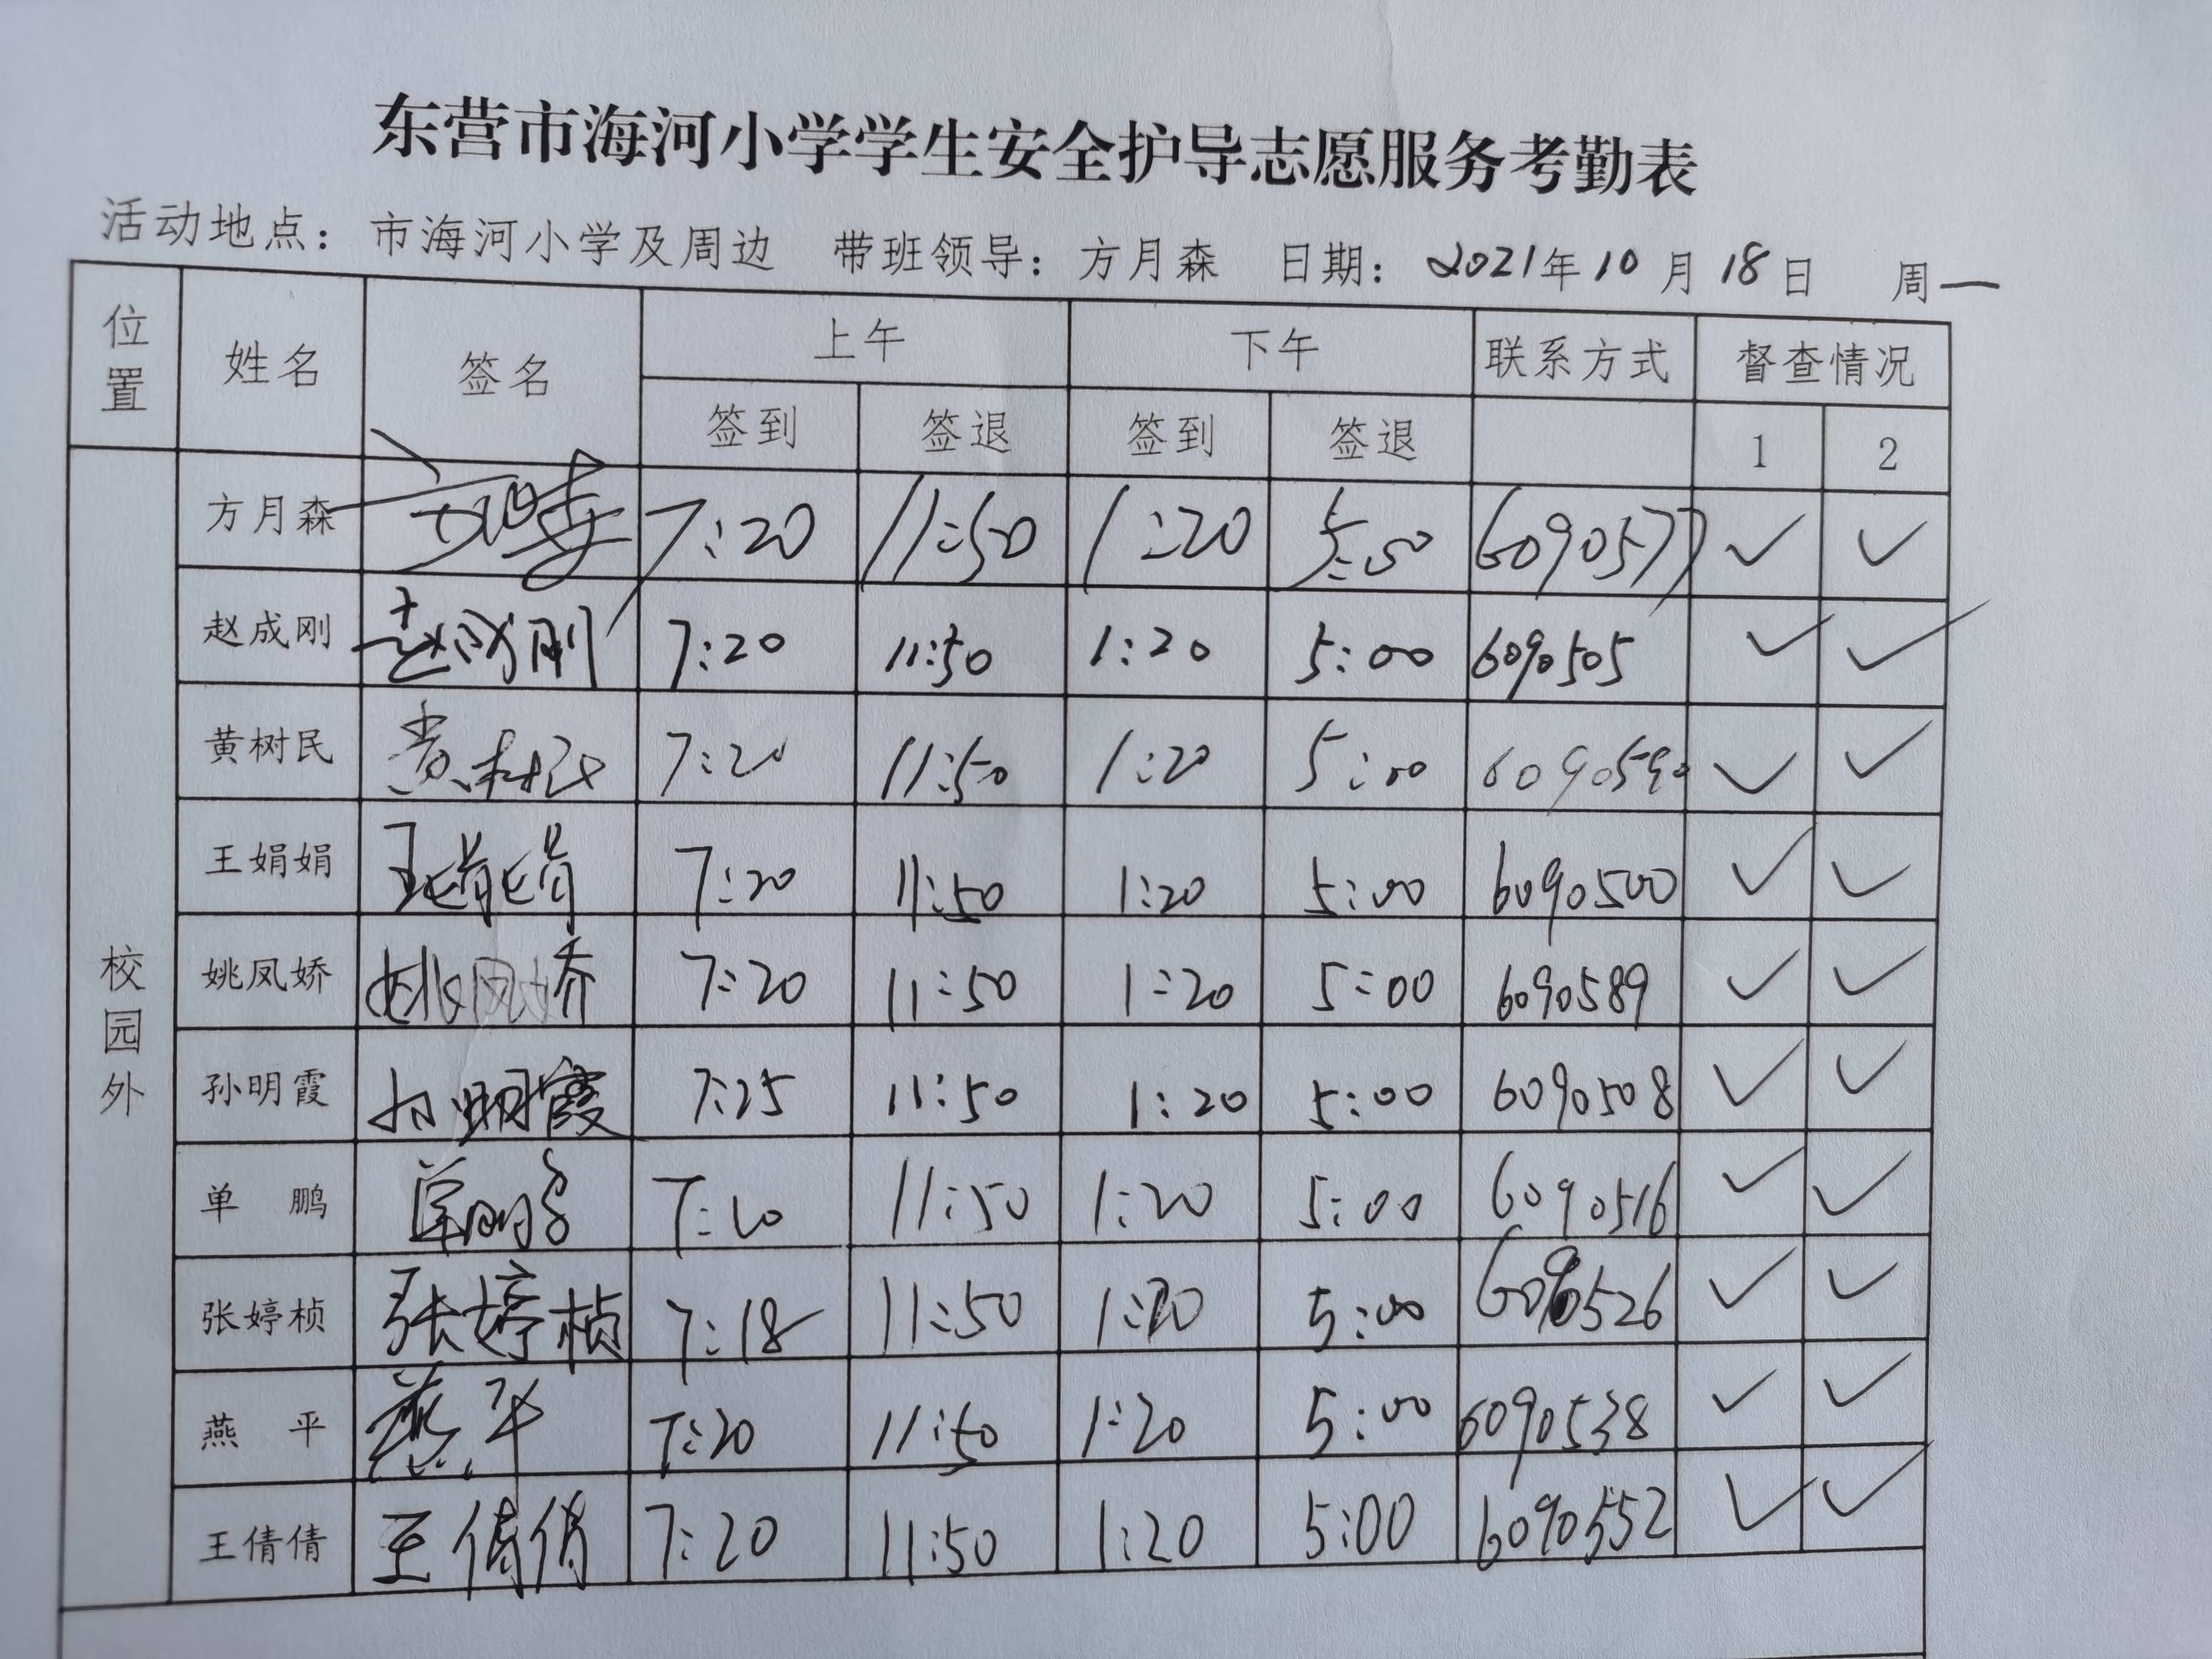 东营市海河小学学生安全护导志愿服务考勤表
活动地点：市海河小学及周边 带班领导：方月森 日期：2021年10月18日 周一
位置 姓名 签名 上午 下午 联系方式 督查情况
签到 签退 签到 签退 1 2
校园外
方月森 7:20 11:50 1:20 5:00 6090577 ✓ ✓
赵成刚 赵成刚 7:20 11:50 1:20 5:00 6090505 ✓ ✓
黄树民 黄树民 7:20 11:50 1:20 5:00 6090590 ✓ ✓
王娟娟 王娟娟 7:20 11:50 1:20 5:00 6090500 ✓ ✓
姚凤娇 姚凤娇 7:20 11:50 1:20 5:00 6090589 ✓ ✓
孙明霞 孙明霞 7:25 11:50 1:20 5:00 6090508 ✓ ✓
单 鹏 单鹏 11:50 1:20 5:00 6090516 ✓ ✓
张婷桢 张婷桢 7:18 11:50 1:20 5:00 6090526 ✓ ✓
燕 平 燕平 7:20 11:50 1:20 5:00 6090538 ✓ ✓
王倩倩 王倩倩 7:20 11:50 1:20 5:00 6090552 ✓ ✓